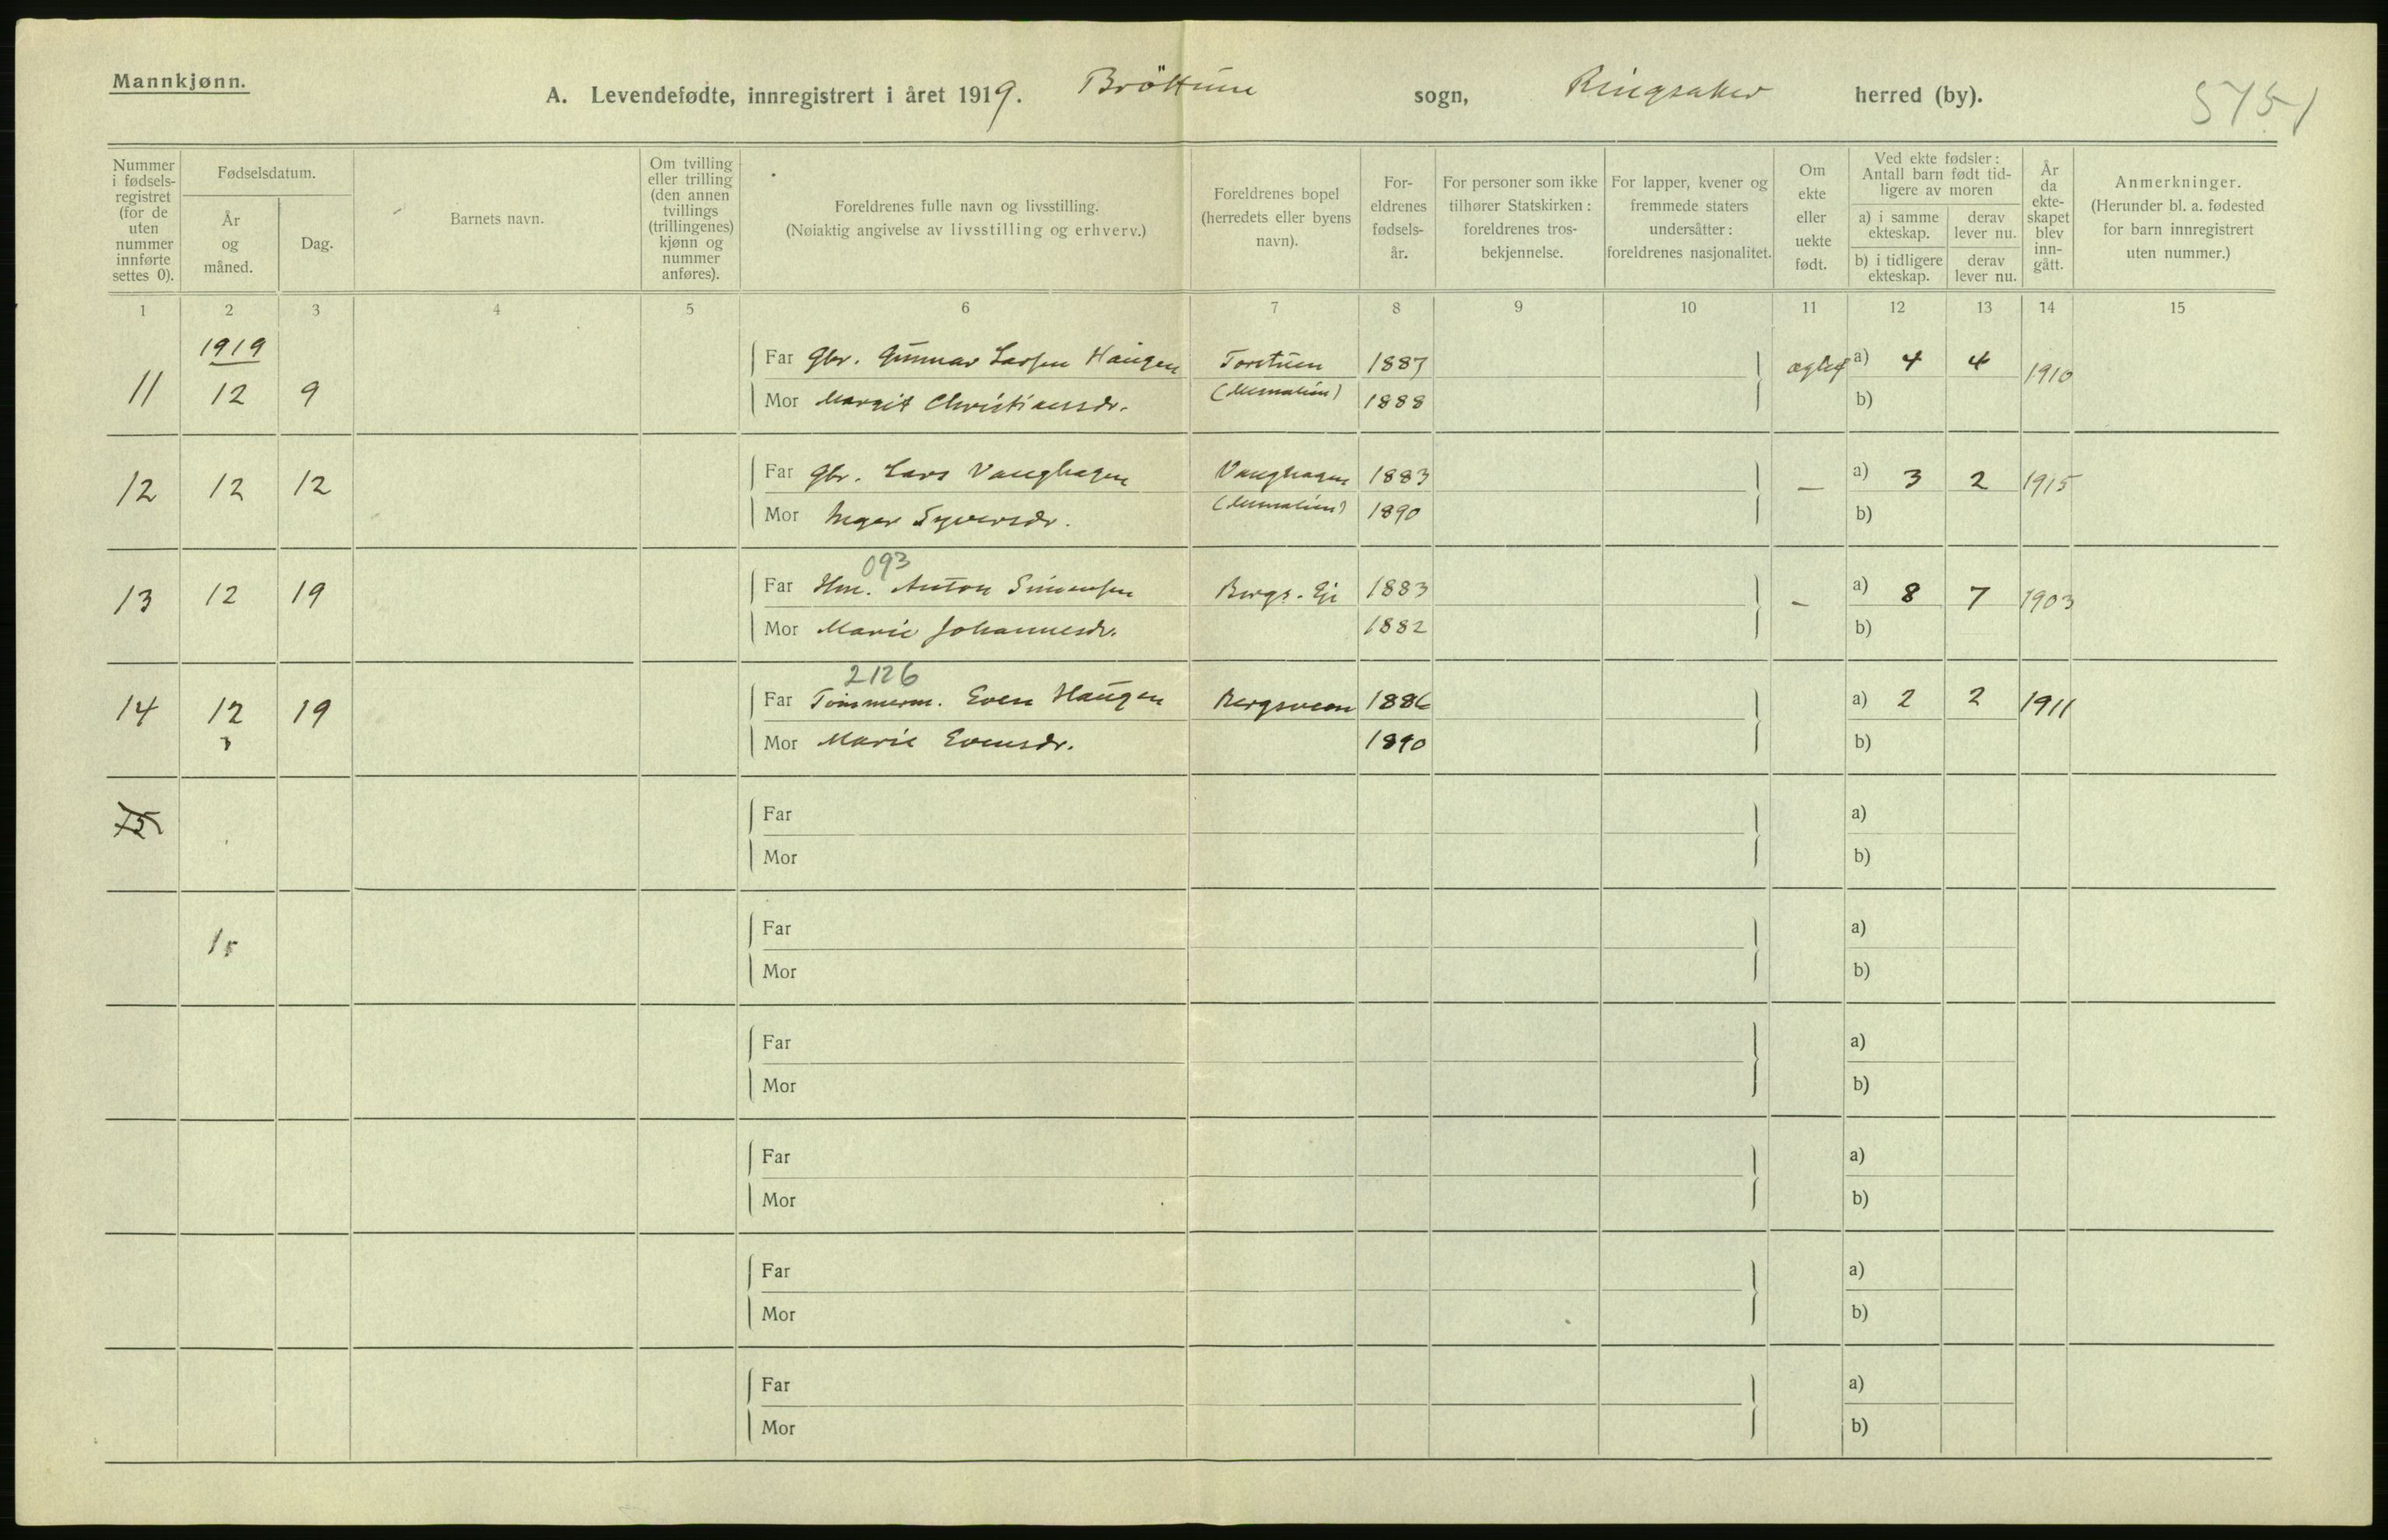 Mannkjønn.
A. Levendefødte, innregistrert i året 1919. Bröttum sogn, Ringsaker herred (by). 5751
Nummer i fødsels-registret (for de uten nummer innførte settes 0).
Fødselsdatum.
År og måned.
Dag.
Barnets navn.
Om tvilling eller trilling (den annen tvillings (trillingenes) kjønn og nummer anføres).
Foreldrenes fulle navn og livsstilling.
(Nøiaktig angivelse av livsstilling og erhverv.)
Foreldrenes bopel (herredets eller byens navn).
For-eldrenes fødsels-år.
For personer som ikke tilhører Statskirken: foreldrenes tros-bekjennelse.
For lapper, kvener og fremmede staters undersåtter: foreldrenes nasjonalitet.
Om ekte eller uekte født.
Ved ekte fødsler: Antall barn født tid-ligere av moren
a) i samme ekteskap.
derav lever nu.
b) i tidligere ekteskap.
derav lever nu.
År da ekte-skapet blev inn-gått.
Anmerkninger.
(Herunder bl. a. fødested for barn innregistrert uten nummer.)
1 2 3 4 5 6 7 8 9 10 11 12 13 14 15
1919
11 12 9 Far Gbr. Gunnar Larsen Haugen Torstuen 1887 a) 4 4 1910
Mor Margit Christiansdr. 1888 b)
12 12 12 Far Gbr. Lars Vanghagen Vanghagen 1883 — a) 3 2 1915
Mor Inger Syversdr. 1890 b)
093
13 12 19 Far Hm. Anton Simensen Bergs. Eje 1883 – a) 8 7 1903
Mor Marie Johannesdr. 1882 b)
2126
14 12 19 Far Tømmerm. Even Haugen Bergsveen 1886 a) 2 2 1911
Mor Marie Evensdr. 1890 b)
15 Far a)
Mor b)
Far a)
Mor b)
Far a)
Mor b)
Far a)
Mor b)
Far a)
Mor b)
Far a)
Mor b)